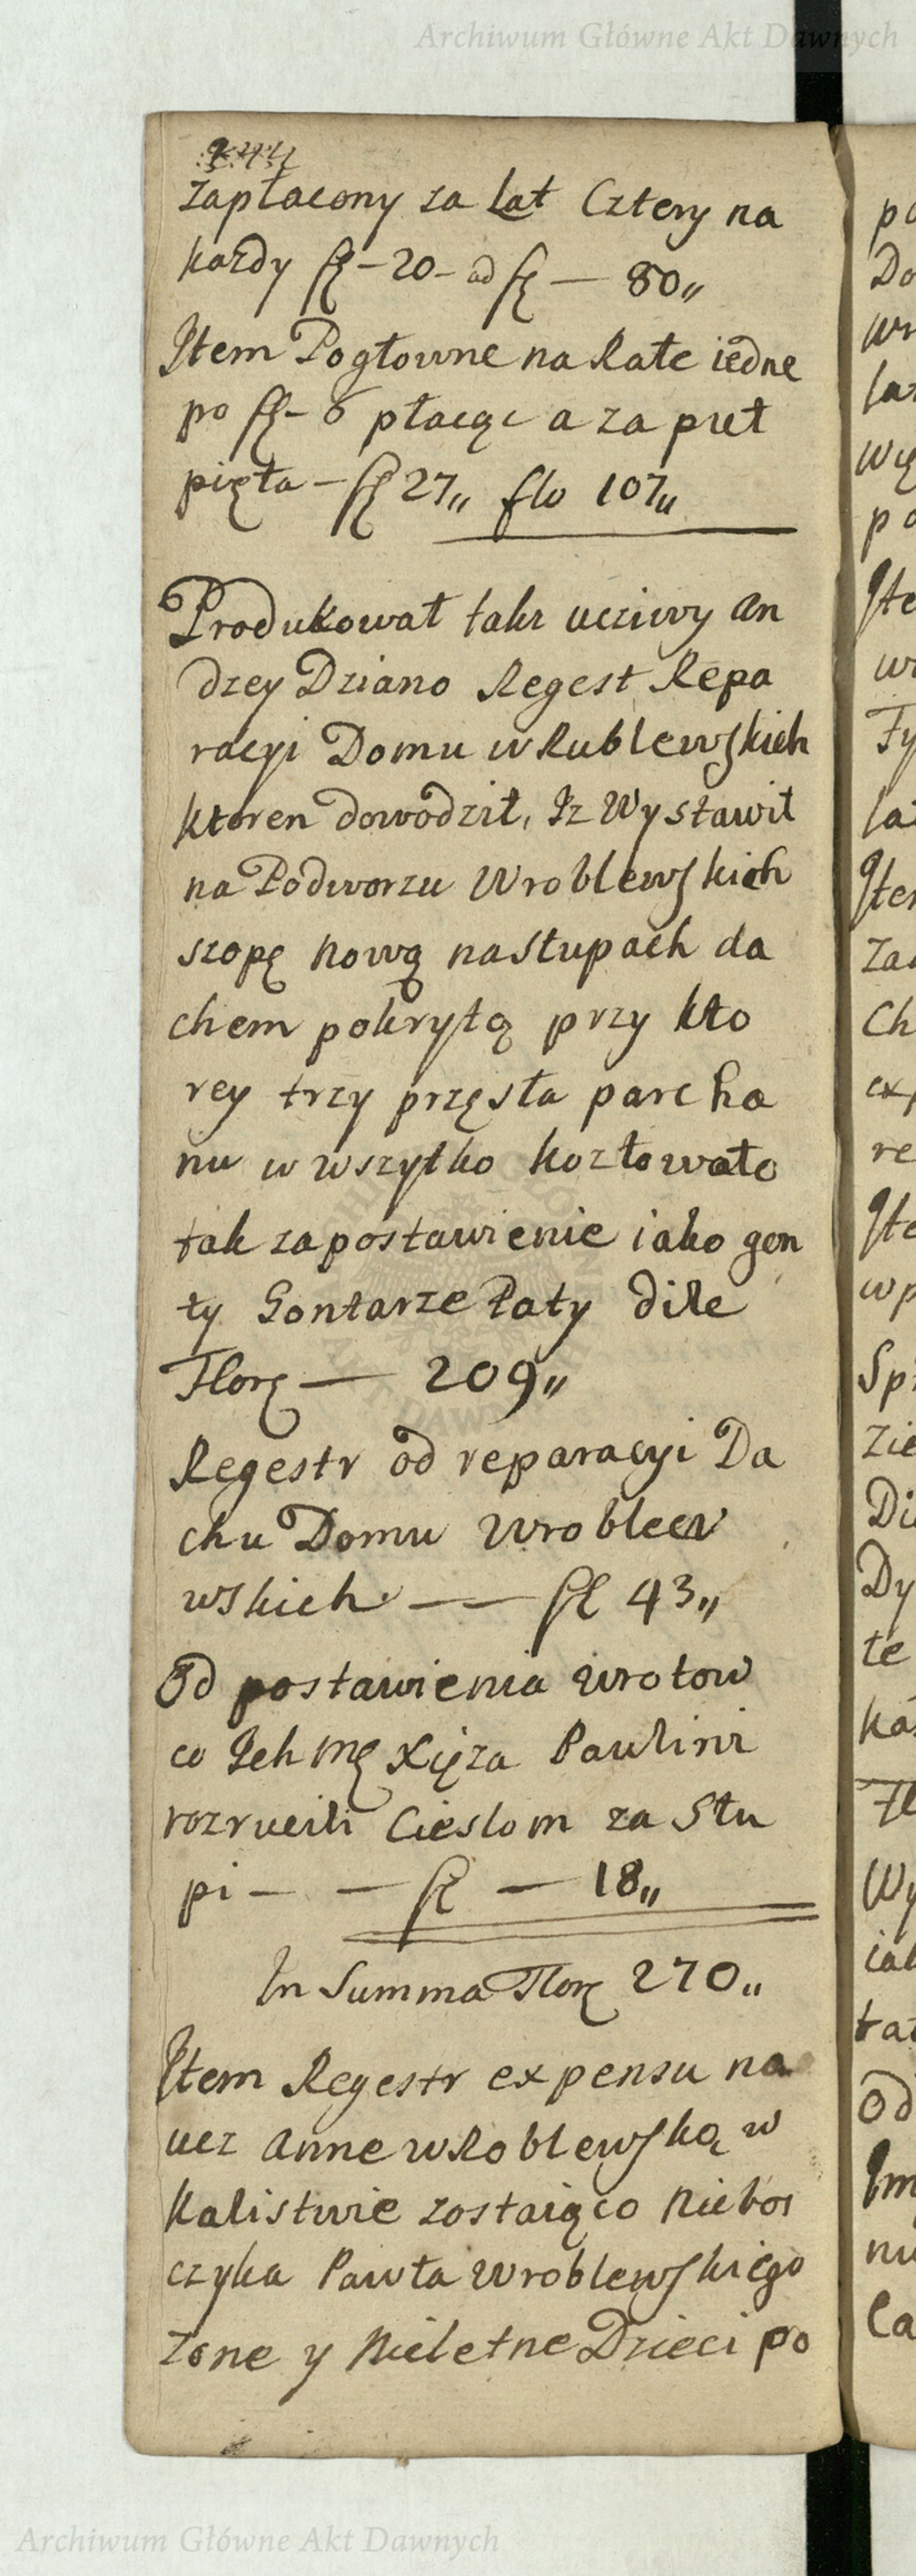 Archiwum Główne Akt Dawnych
zapłacony za Lat Cztery na
kazdy fl – 20 – ad fl — 80„
Item Pogłowne na Rate iedne
po fl – 6 płacąc a za puł
pięta – fl 27„ flo 107„
Produkował takz ucziwy An
drzey Dziano Regest Repa
racyi Domu wRublewskich
ktoren dowodził, Iz Wystawił
na Podworzu Wroblewskich
szopę nową nastupach da
chem pokrytą przy kto
rey trzy przęsła parcha
nu w wszytko koztowało
tak zapostawienie iako gon
ty Gontarze Łaty dile
Flor — 209„
Regestr od reparacyi Da
chu Domu Wroblew
wskich — fl 43„
Od postawienia wrotow
co Ich Xięza Paulini
rozrucili Cieslom za Stu
pi – — fl — 18„
In Summa Flor 270„
Item Regestr expensu na
ucz Anne wRoblewską w
Kalistwie zostaiąco Niebos
czyka Pawła Wroblewskiego
zone y Nieletne Dzieci po
Archiwum Główne Akt Dawnych